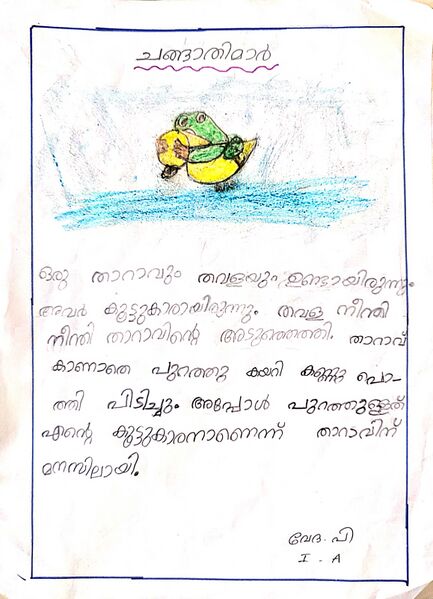 ചങ്ങാതിമാർ
ഒരു താറാവും തവളയും ഉണ്ടായിരുന്നു.
അവർ കൂട്ടുകാരായിരുന്നു. തവള നീന്തി
നീന്തി താറാവിന്റെ അടുത്തെത്തി. താറാവ്
കാണാതെ പുറത്തു കയറി കണ്ണു പൊ-
ത്തി പിടിച്ചു. അപ്പോൾ പുറത്തുള്ളത്
എന്റെ കൂട്ടുകാരനാണെന്ന് താറാവിന്
മനസിലായി.
വേദ. പി
I - A